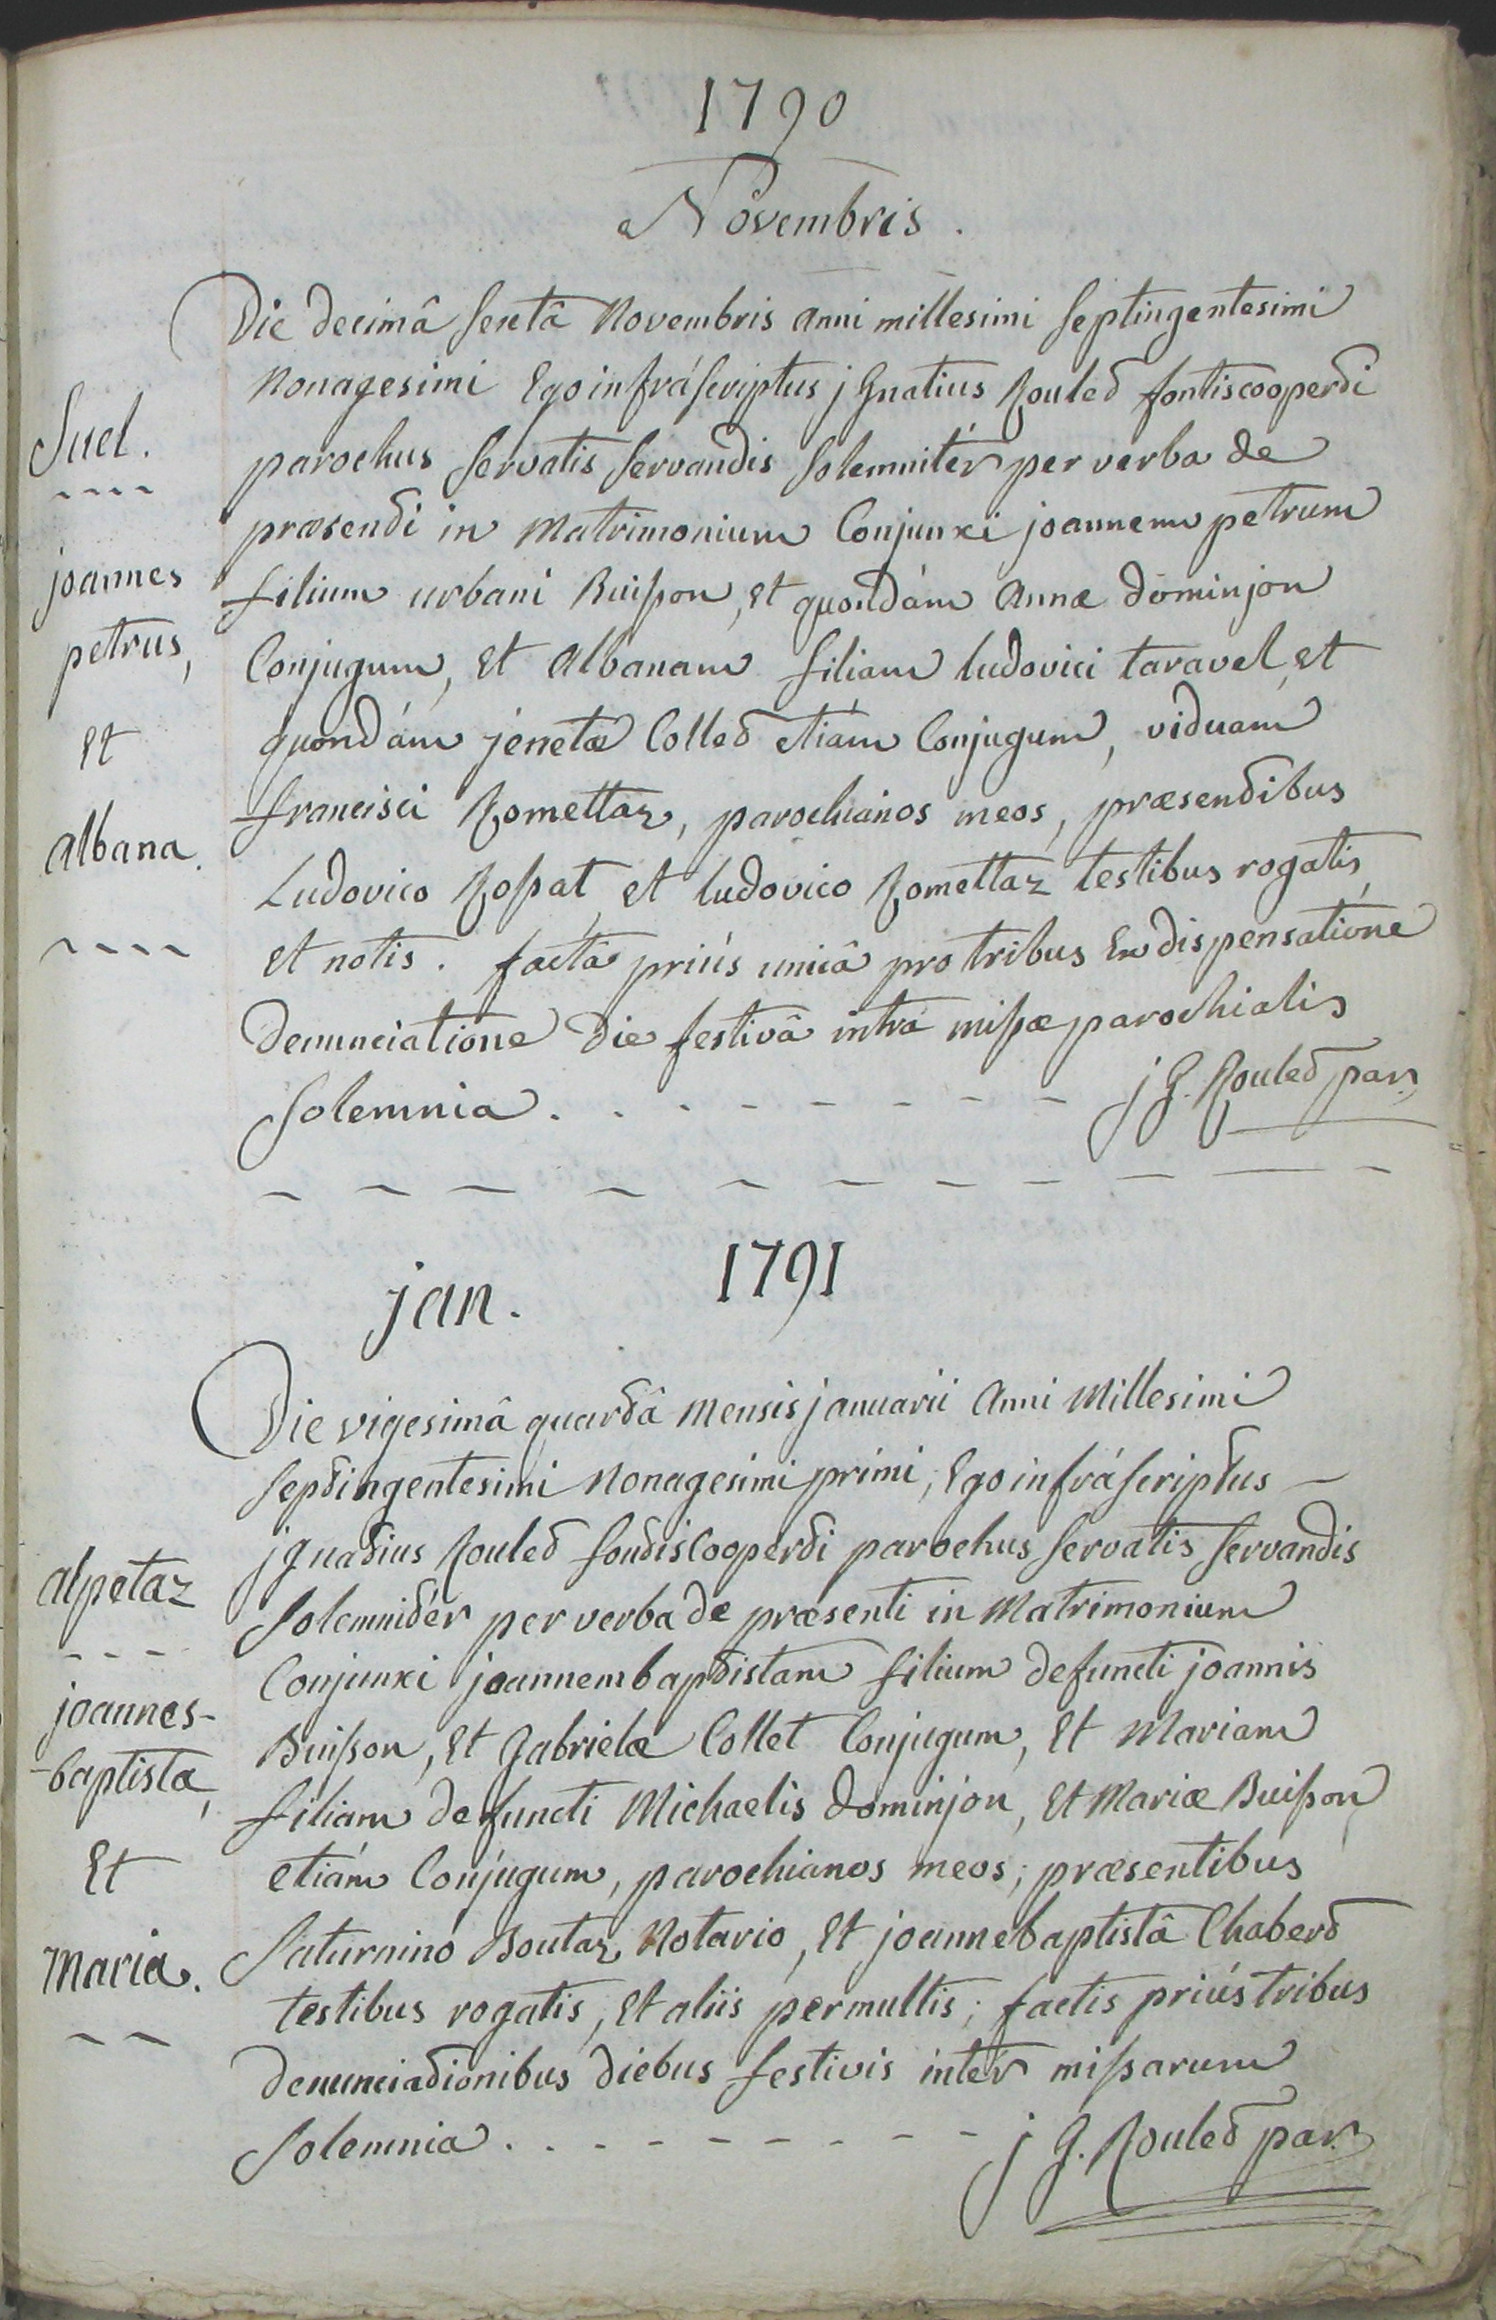 1790
Novembris.
Die decimâ sextâ Novembris anni millesimi septingentesimi
Nonagesimi Ego infráscriptus jGnatius Roulet fontiscooperti
Suel.
parochus servatis servandis solemnitér per verba de
præsenti in Matrimonium Conjunxi joannem petrum
joannes
filium urbani Buisson, et quondám Annæ dominjon
petrus,
Conjugum, et Albanam filiam ludovici taravel, et
Et
quondám jenetæ Collet etiám Conjugum, viduam
francisci Romettaz, parochianos meos, præsentibus
albana.
Ludovico Rossat, et ludovico Romettaz testibus rogatis,
et notis. factâ priús unicâ pro tribus Ex dispensatione
Denunciatione Die festivâ intrá missæ parochialis
Solemnia. jG. Roulet par.
1791
jan.
Die vigesimâ quartâ Mensis januarii Anni Millesimi
septingentesimi Nonagesimi primi, Ego infráscriptus
jGnatius Roulet fontisCooperti parochus servatis servandis
alpetaz
Solemnitér per verba de præsenti in Matrimonium
Conjunxi joannem baptistam filium defuncti joannis
joannes-
Buisson, Et Gabrielæ Collet Conjugum, Et Mariam
-baptista,
filiam defuncti Michaelis dominjon, Et Mariæ Buisson,
Et
etiám Conjugum, parochianos meos; præsentibus
Maria.
Saturnino Boutaz Notario, Et joanne baptistâ Chabert
testibus rogatis, Et aliis permultis; factis priús tribus
Denunciationibus diebus festivis intér missarum
Solemnia. j G. Roulet par.